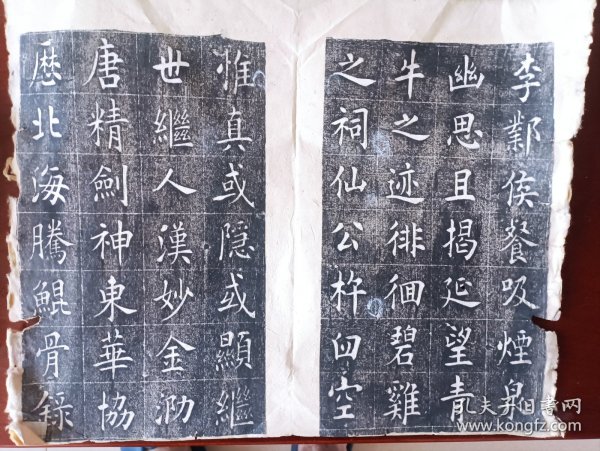 李鄴侯餐吸煙
幽思且揭延望青
牛之迹徘徊碧雞
之祠仙公杵臼空
惟真或隱或顯繼
世繼人漢妙金泐
唐精劍神東華協
歷北海騰鯤骨錄
孔夫子旧书网
www.kongfz.com